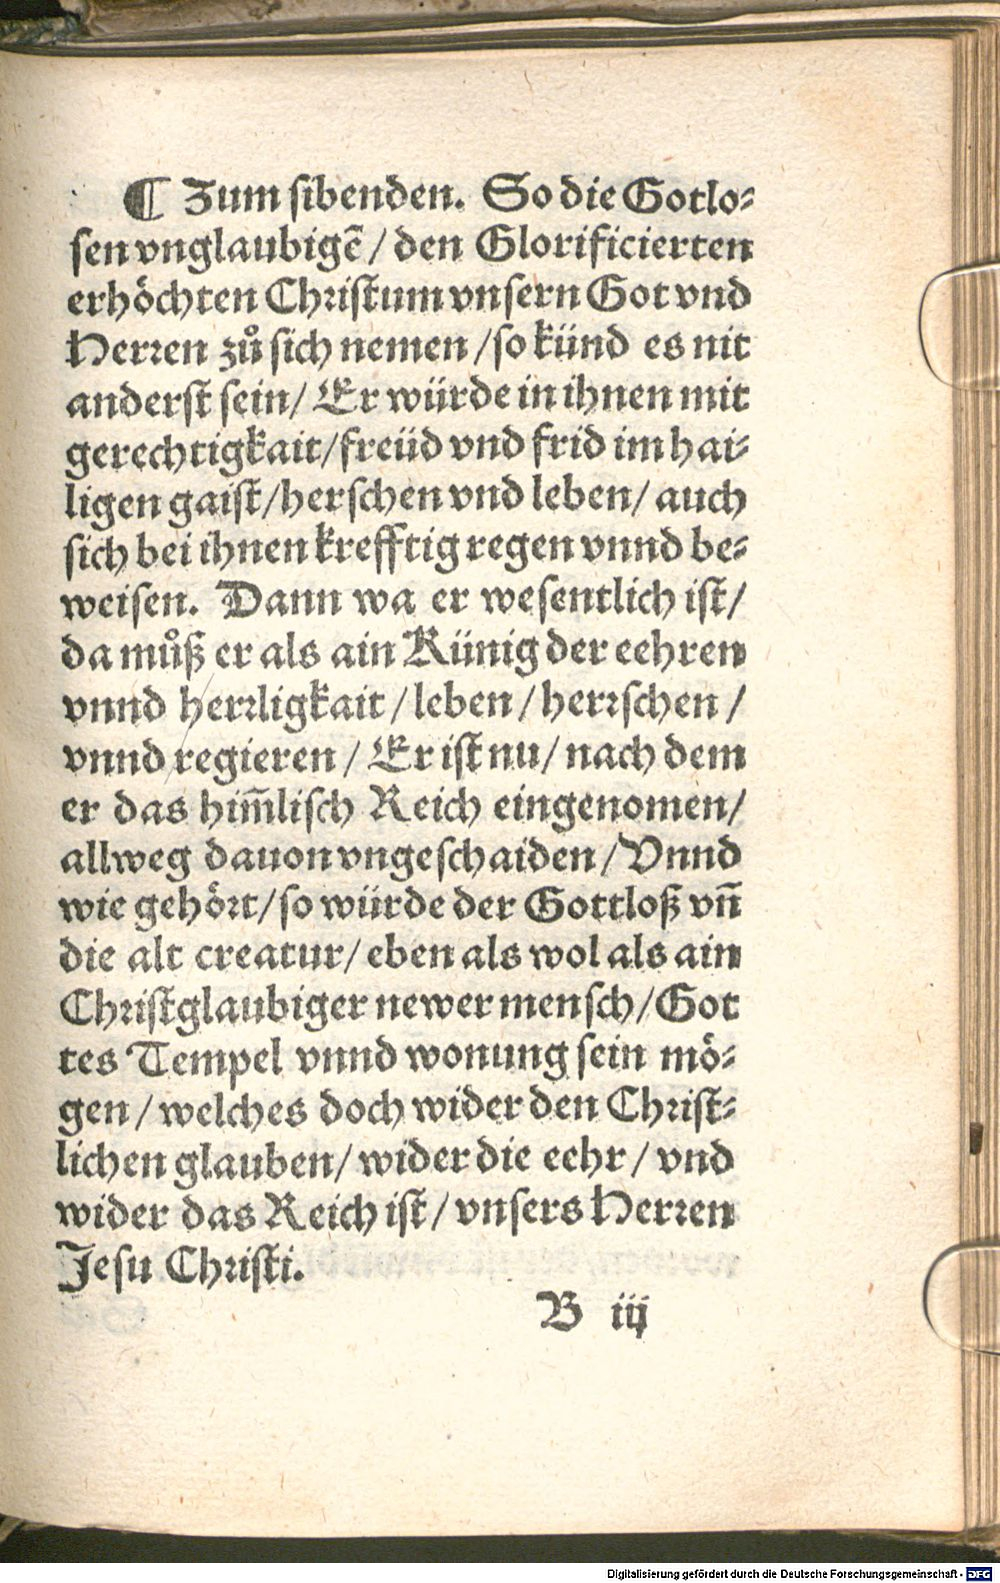 ¶ Zum ſibenden. So die Gotlo⸗
ſen vnglaubigē / den Glorificierten
erhöchten Chꝛiſtum vnſern Got vnd
Herꝛen zů ſich nemen / ſo künd es nit
anderſt ſein / Er würde in ihnen mit
gerechtigkait / freüd vnd frid im hai⸗
ligen gaiſt / herſchen vnd leben / auch
ſich bei ihnen krefftig regen vnnd be⸗
weiſen. Dann wa er weſentlich iſt /
da můß er als ain Künig der eehren
vnnd herꝛligkait / leben / herꝛſchen /
vnnd regieren / Er iſt nu / nach dem
er das him̅liſch Reich eingenomen /
allweg dauon vngeſchaiden / Vnnd
wie gehöꝛt / ſo würde der Gottloß vn̅
die alt creatur / eben als wol als ain
Chꝛiſtglaubiger newer menſch / Got
tes Tempel vnnd wonung ſein mö⸗
gen / welches doch wider den Chꝛiſt⸗
lichen glauben / wider die eehr / vnd
wider das Reich iſt / vnſers Herꝛen
Jeſu Chꝛiſti.
B iij
Digitalisierung gefördert durch die Deutsche Forschungsgemeinschaft - DFG